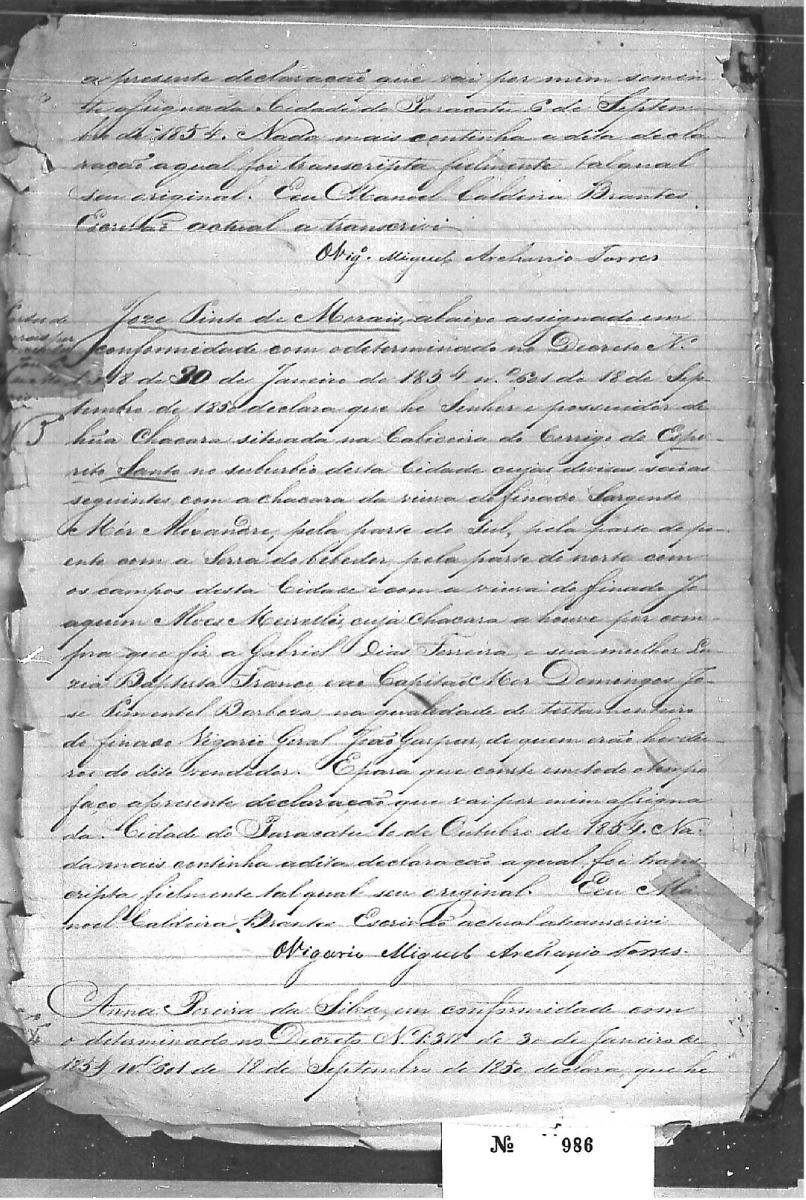 a presente declaração que vai por mim somen
te asignada. Cidade do Paracatu 6 de Septem
bro de 1854. Nada mais continha a dita decla
ração a qual foi transcripta fielmente tal qual
seu original. Eeu Manoel Caldeira Brantes
Escrivão actual a transcrivi
O Vigº. Miguel Archanjo Torres
Joze Pinto de Morais, abaixo assignado em
conformidade com o determinado no Decreto N.
1318 de 30 de Janeiro de 1854 nº 601 de 18 de Sep
tembro de 1850 declara que he Senhor e possuidor de
hũa Chacara situada na Cabiceira do Corrigo do Espi
rito Santo no suburbio desta Cidade cujas devisas são as
seguintes com a chacara da viuva do finado Sargento
Mór Alexandre, pela parte do Sul, pela parte do po
ente com a Serra do bebedor, pela parte do norte com
os campos desta Cidade e com a viuva do finado Jo
aquim Alves Meirelles, cuja chacara a houve por com
pra que fis a Gabriel Dias Ferreira, e sua mulher Lu
zia Baptista Franco e ao Capitão Mor Domingos Jo
se Pimentel Barboza, na qualidade de testamenteiro
do finado Vigario Geral João Gaspar, de quem erão herdei
ros do dito vendedor. E para que conste em todo o tempo
faço a presente declaração que vai por mim asigna
da. Cidade do Paracatu 1º de Outubro de 1854. Na
da mais continha a dita declaração a qual foi trans
cripta fielmente tal qual seu original. Eeu Ma
noel Caldeira Brantes Escrivão actual a transcrivi
O Vigario Miguel Archanjo Torres.
Nº 5
Anna Pereira da Silva, em conformidade com
o determinado no Decreto Nº 1:318 de 30 de Janeiro de
1854 nº 601 de 18 de Septembro de 1850 declara, que he
Nº 986